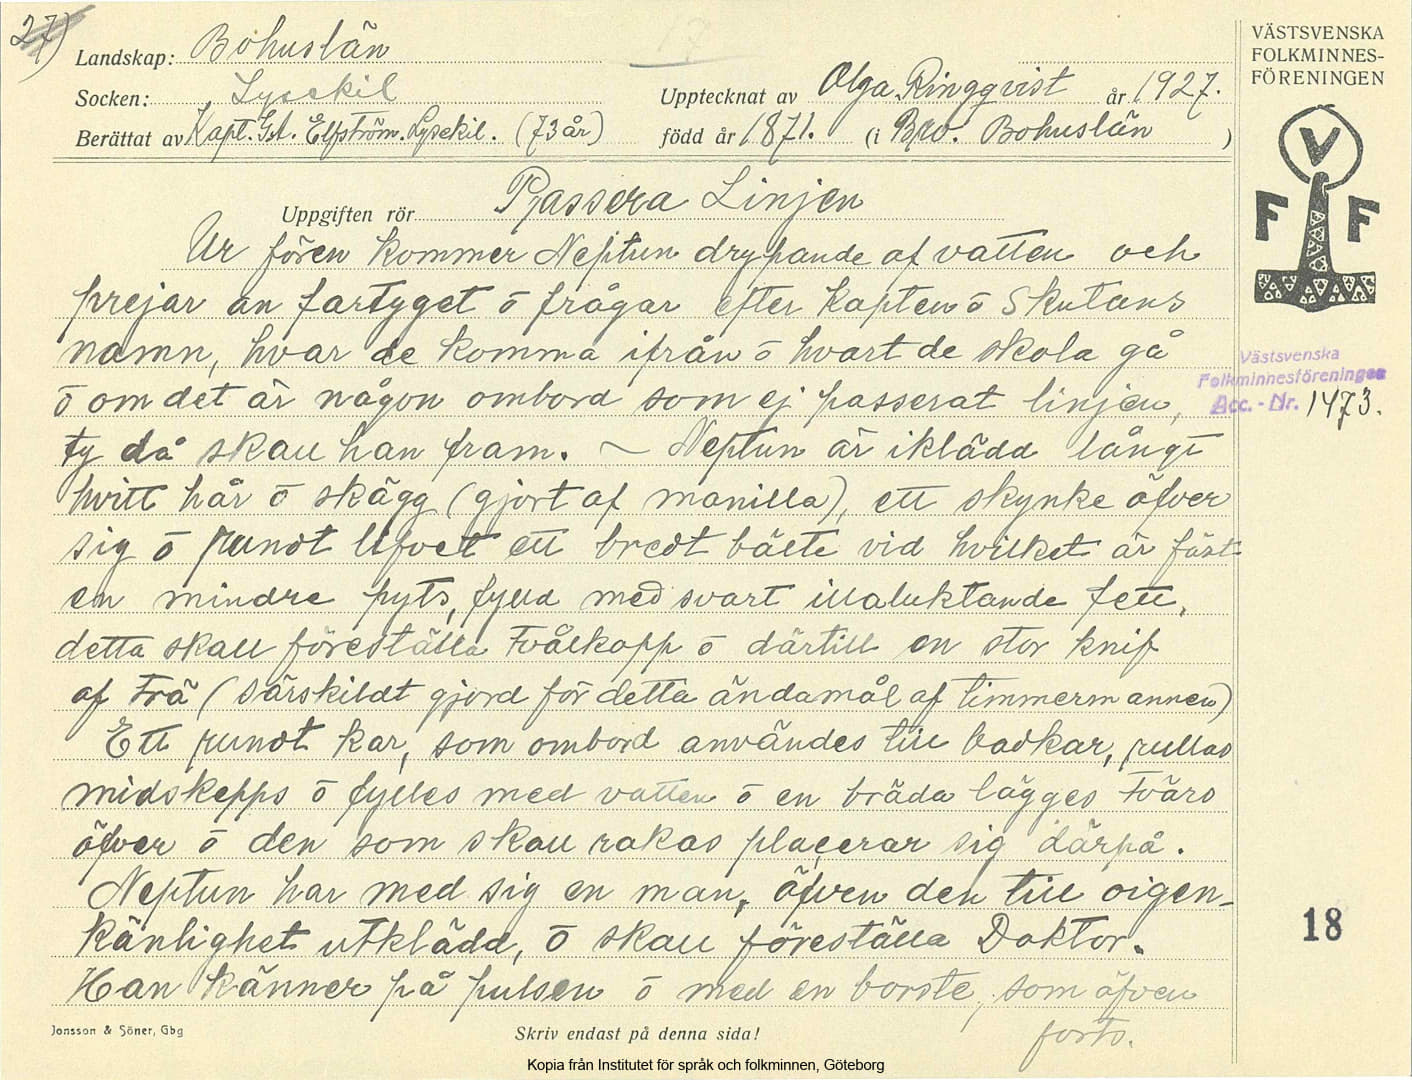 27)
Landskap: Bohuslän
17
VÄSTSVENSKA
FOLKMINNES-
FÖRENINGEN
Socken: Lysekil
Upptecknat av Olga Ringqvist år 1927.
Berättat av Kapt. G.A. Elfström. Lysekil. (73 år)
född år 1871. (i Bro. Bohuslän )
V
F F
Uppgiften rör Passera Linjen
Ur fören kommer Neptun drypande af vatten och
prejar an fartyget ō frågar efter kapten ō Skutans
namn, hvar de komma ifrån ō hvart de skola gå
ō om det är någon ombord som ej passerat linjen,
ty då skall han fram. ~ Neptun är iklädd långt
hvitt hår ō skägg (gjort af manilla), ett skynke öfver
sig ō rundt lifvet ett bredt bälte vid hvilket är fäst
en mindre pyts, fylld med svart illaluktande fett,
detta skall föreställa Tvålkopp ō därtill en stor knif
af Trä (särskildt gjord för detta ändamål af timmermannen)
Ett rundt kar, som ombord användes till badkar, rullas
midskepps ō fylles med vatten ō en bräda lägges tvärs
öfver ō den som skall rakas placerar sig därpå.
Neptun har med sig en man, äfven den till oigen-
känlighet utklädd, ō skall föreställa Doktor.
Han känner på pulsen ō med en borste, som äfven
forts.
Västsvenska
Folkminnesföreningen
Acc. - Nr. 1473.
18
Jonsson & Söner, Gbg
Skriv endast på denna sida!
Kopia från Institutet för språk och folkminnen, Göteborg